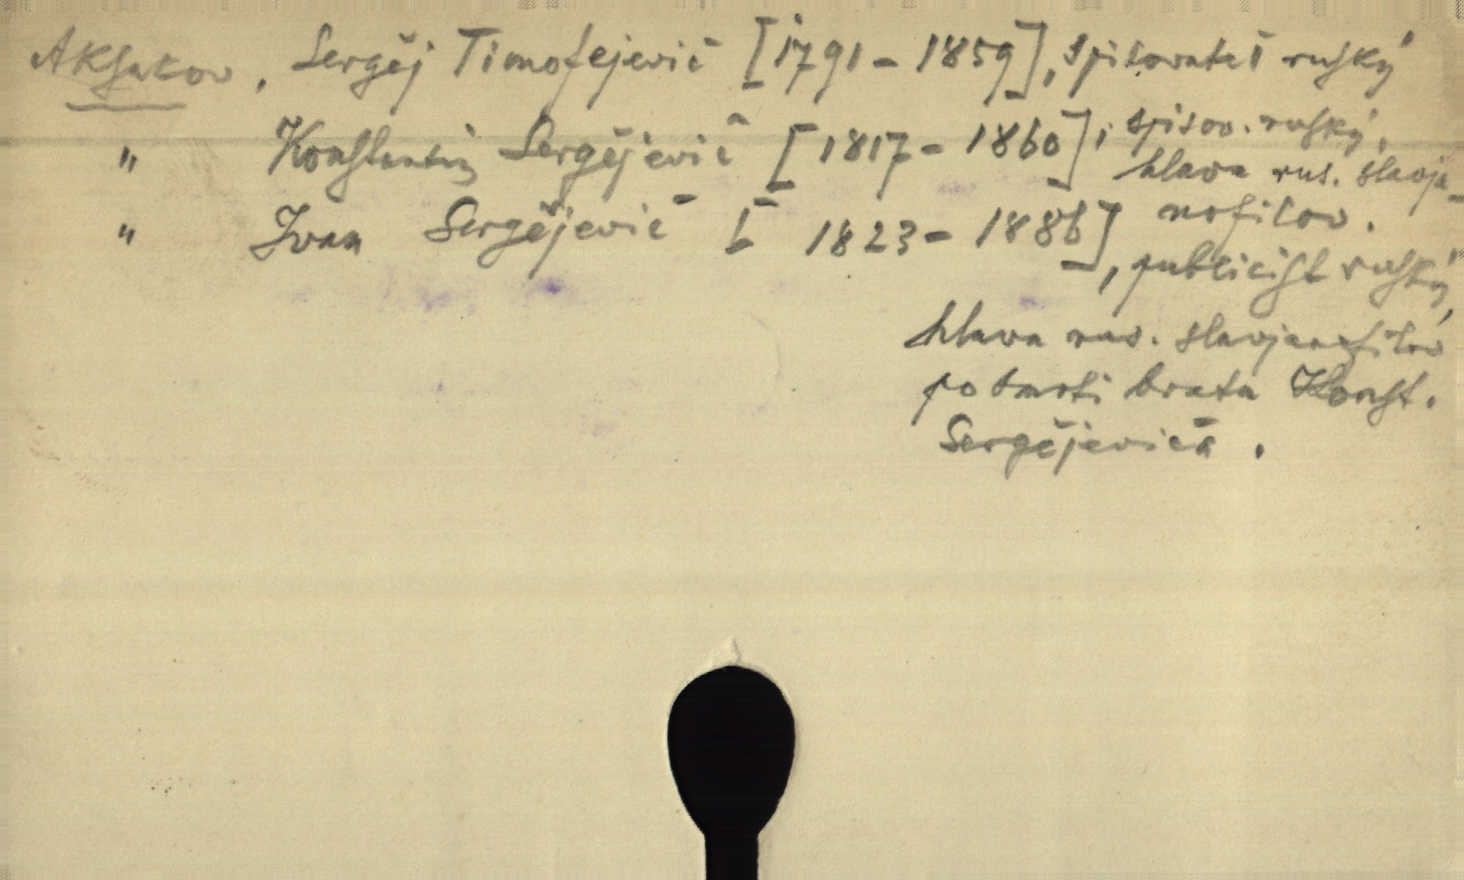 Aksakov, Sergěj Timofejevič [1791 - 1859], spisovatel ruský
" Konstantin Sergějevič [1817 - 1860], spisov. ruský,
hlava rus. slavja-
nofilov.
" Ivan Sergějevič [1823 - 1886], publicist ruský,
hlava rus. slavjanofilov
po smrti brata Konst.
Sergějeviča.